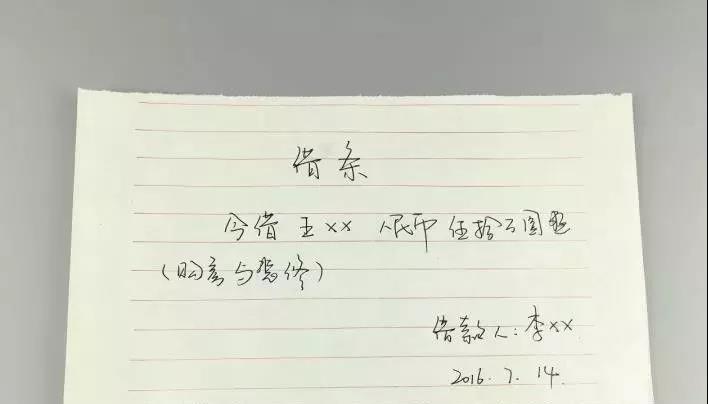 借条
今借 王×× 人民币 伍拾万圆整
( 装修)
借款人:李××
2016.7.14.